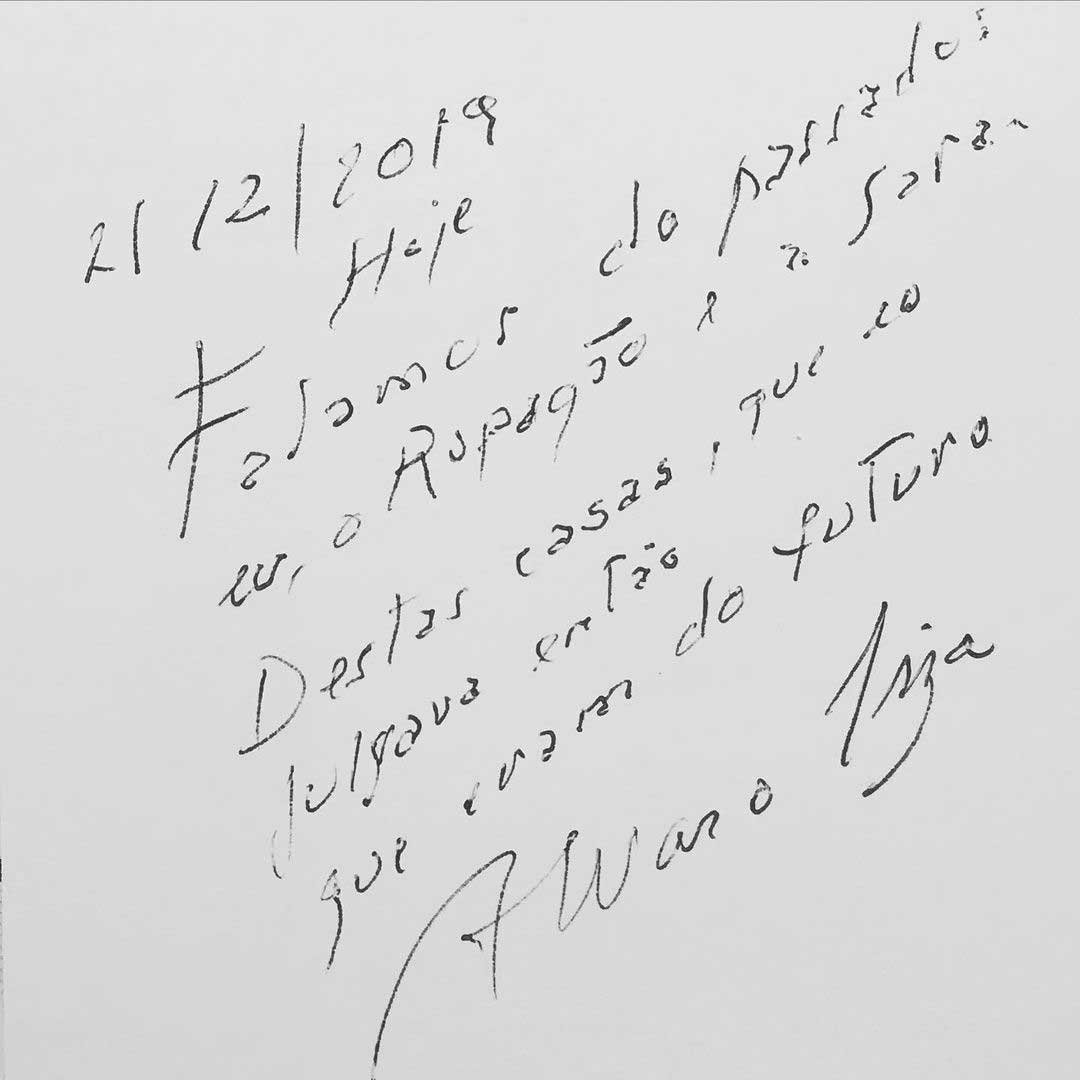 21/12/2019
Hoje
Falamos do passado:
eu, o Rapagão e a Sara
Destas casas, que eu
julgava então
que eram do futuro
Alvaro Siza